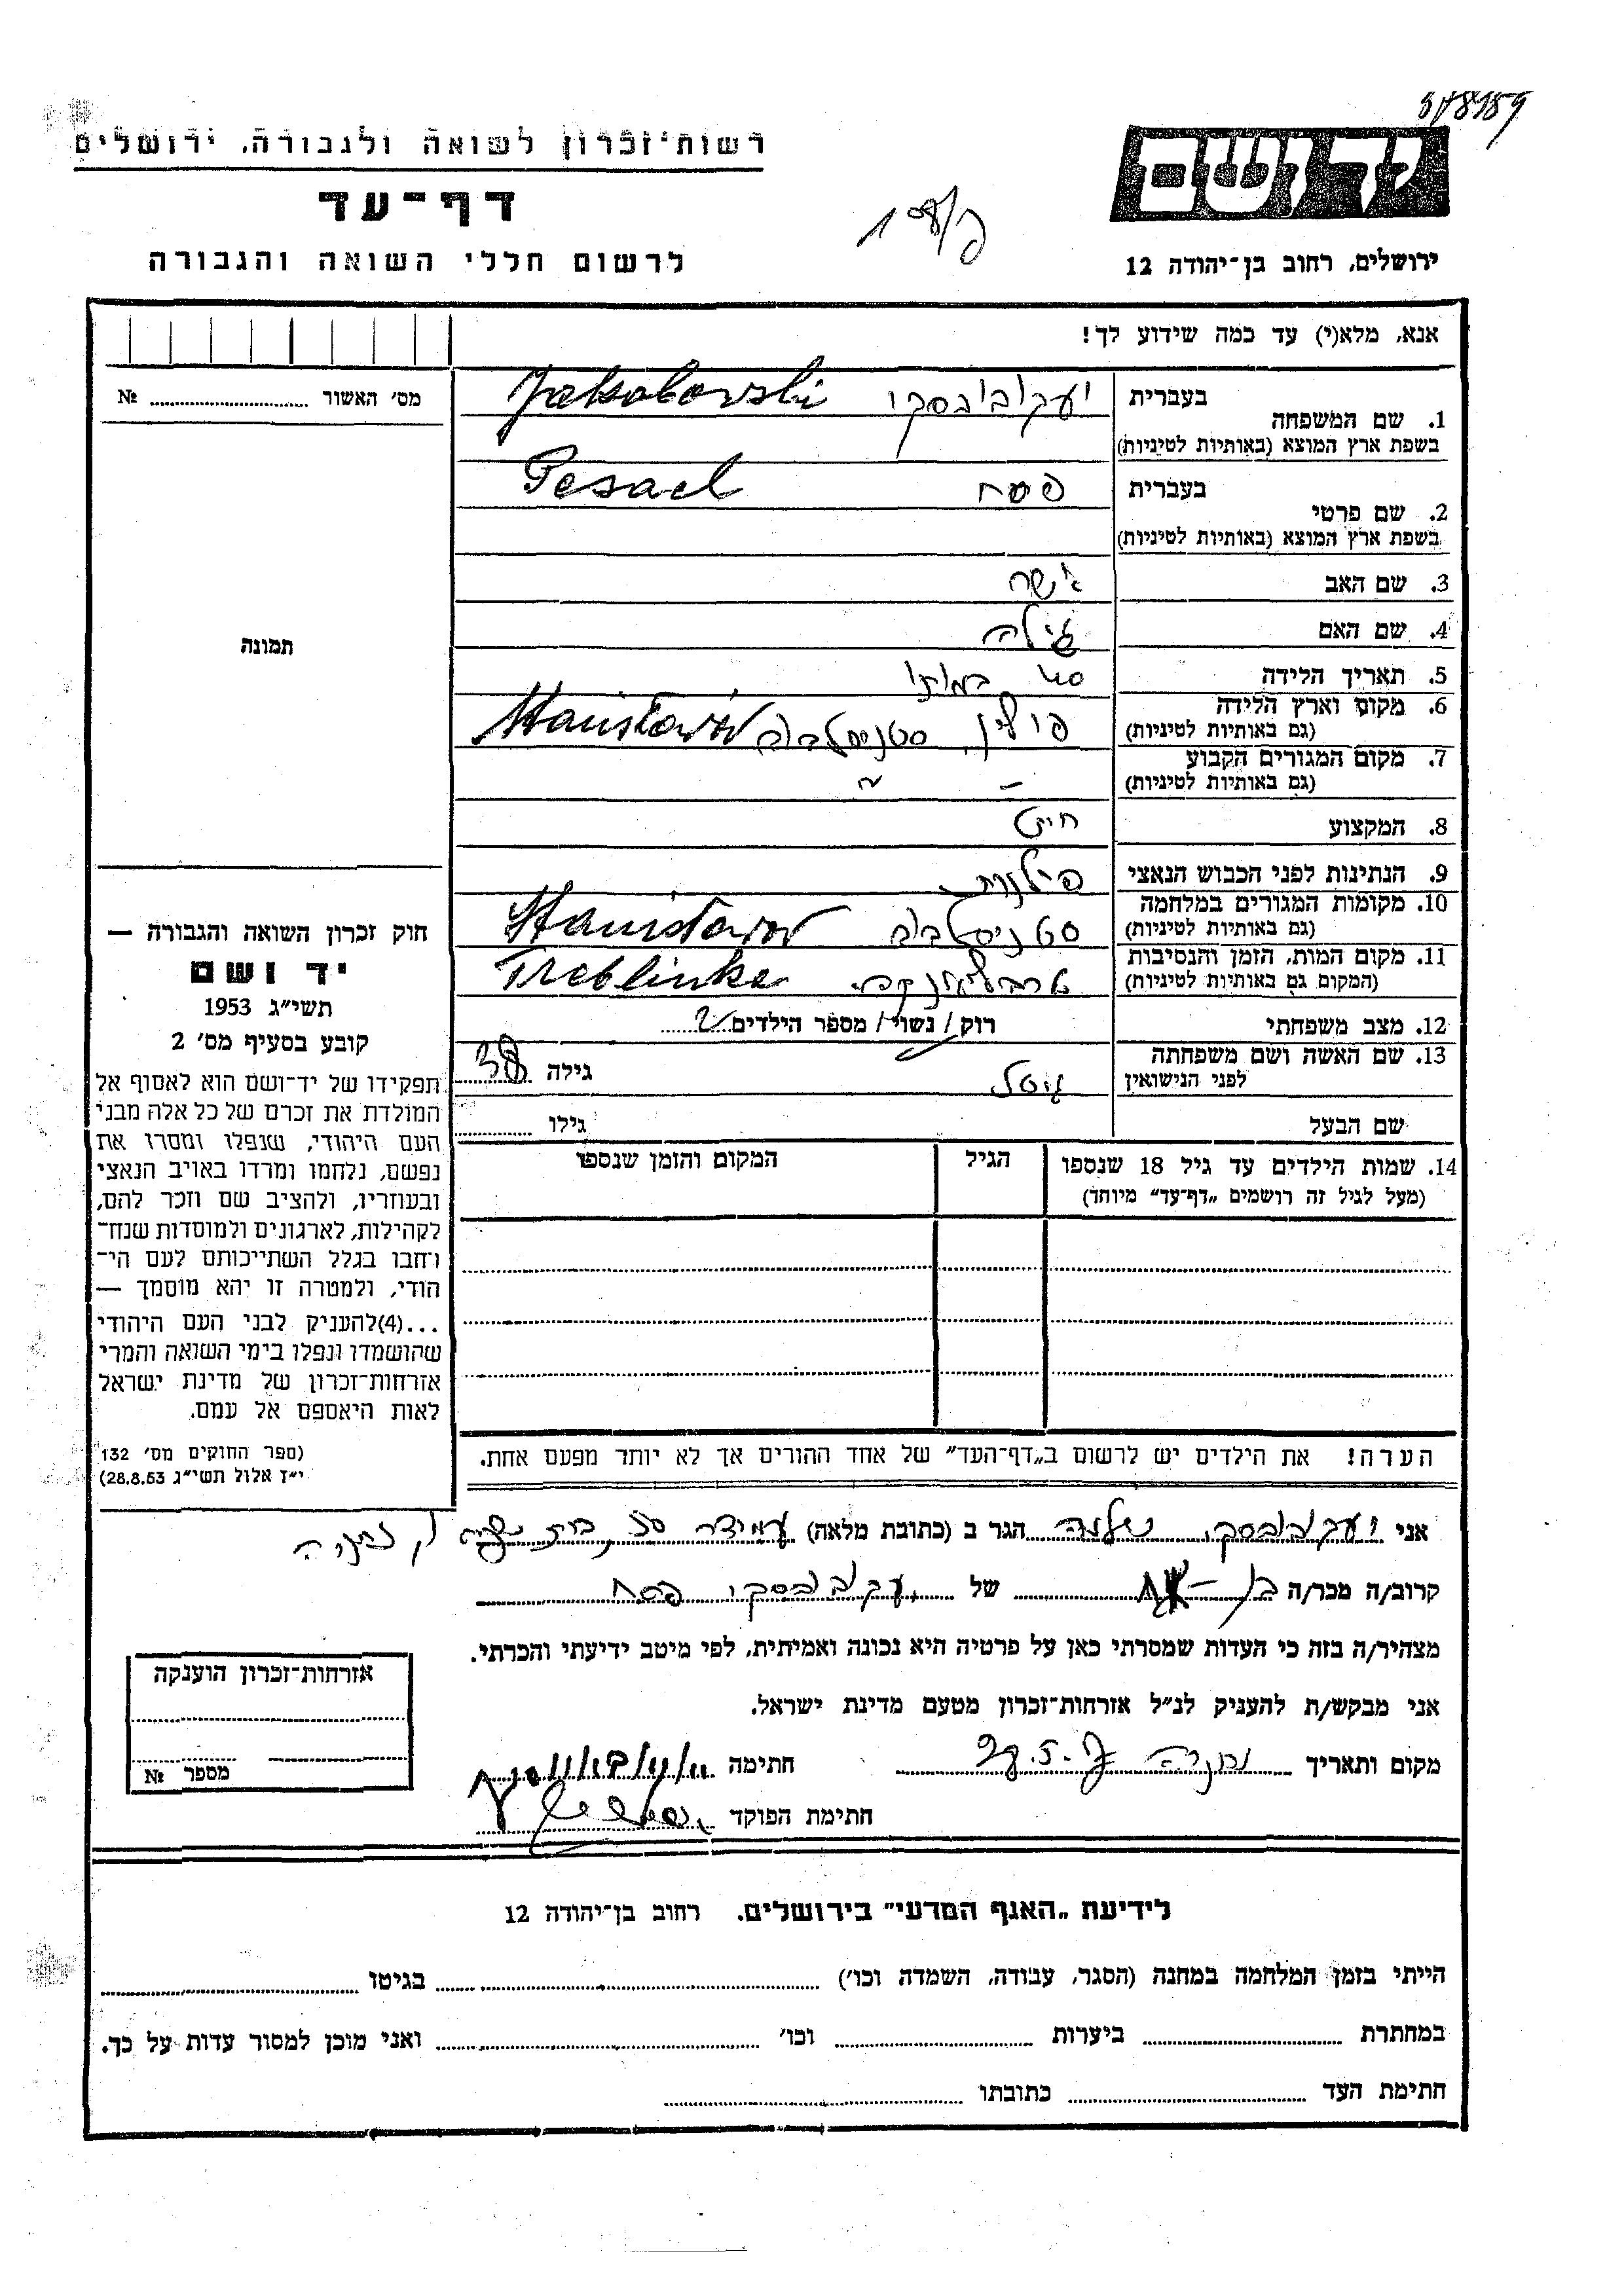 רשות־זכרון לשואה ולגבורה, ירושלים
דף־עד
לרשום חללי השואה והגבורה
ירושלים, רחוב בן־יהודה 12
אנא, מלא(י) עד כמה שידוע לך!
מס׳ האשור № ........
תמונה
1. שם המשפחה
בעברית יעקובובסקי Jakobowski
בשפת ארץ המוצא (באותיות לטיניות)
2. שם פרטי
בעברית פסח Pesach
בשפת ארץ המוצא (באותיות לטיניות)
3. שם האב
4. שם האם
5. תאריך הלידה
6. מקום וארץ הלידה
(גם באותיות לטיניות) פולין סטניסלבוב Stanisławów
7. מקום המגורים הקבוע
(גם באותיות לטיניות) — " —
8. המקצוע חיט
9. הנתינות לפני הכבוש הנאצי פולנית
10. מקומות המגורים במלחמה
(גם באותיות לטיניות) סטניסלבוב Stanisławow
11. מקום המות, הזמן והנסיבות
(המקום גם באותיות לטיניות) טרבלינקה Treblinka
12. מצב משפחתי רוק / נשוי / מספר הילדים 2
13. שם האשה ושם משפחתה
לפני הנישואין גיטל גילה 38
שם הבעל גילו ........
14. שמות הילדים עד גיל 18 שנספו
(מעל לגיל זה רושמים „דף־עד״ מיוחד)
הגיל
המקום והזמן שנספו
הערה! את הילדים יש לרשום ב„דף־העד״ של אחד ההורים אך לא יותר מפעם אחת.
חוק זכרון השואה והגבורה —
יד ושם
תשי״ג 1953
קובע בסעיף מס׳ 2
תפקידו של יד־ושם הוא לאסוף אל
המולדת את זכרם של כל אלה מבני
העם היהודי, שנפלו ומסרו את
נפשם, נלחמו ומרדו באויב הנאצי
ובעוזריו, ולהציב שם וזכר להם,
לקהילות, לארגונים ולמוסדות שנח־
רחבו בגלל השתייכותם לעם הי־
הודי, ולמטרה זו יהא מוסמך —
...(4)להעניק לבני העם היהודי
שהושמדו ונפלו בימי השואה והמרי
אזרחות־זכרון של מדינת ישראל
לאות היאספם אל עמם.
(ספר החוקים מס׳ 132
י״ז אלול תשי״ג 28.8.53)
אני יעקובובסקי שלמה הגר ב (כתובת מלאה)
קרוב/ה מכר/ה בן של יעקובובסקי פסח
מצהיר/ה בזה כי העדות שמסרתי כאן על פרטיה היא נכונה ואמיתית, לפי מיטב ידיעתי והכרתי.
אני מבקש/ת להעניק לנ״ל אזרחות־זכרון מטעם מדינת ישראל.
מקום ותאריך חתימה
חתימת הפוקד
אזרחות־זכרון הוענקה
מספר №
לידיעת „האגף המדעי״ בירושלים. רחוב בן־יהודה 12
הייתי בזמן המלחמה במחנה (הסגר, עבודה, השמדה וכו׳) ........ בגיטו ........
במחתרת ........ ביערות ........ וכו׳ ........ ואני מוכן למסור עדות על כך.
חתימת העד ........ כתובתו ........